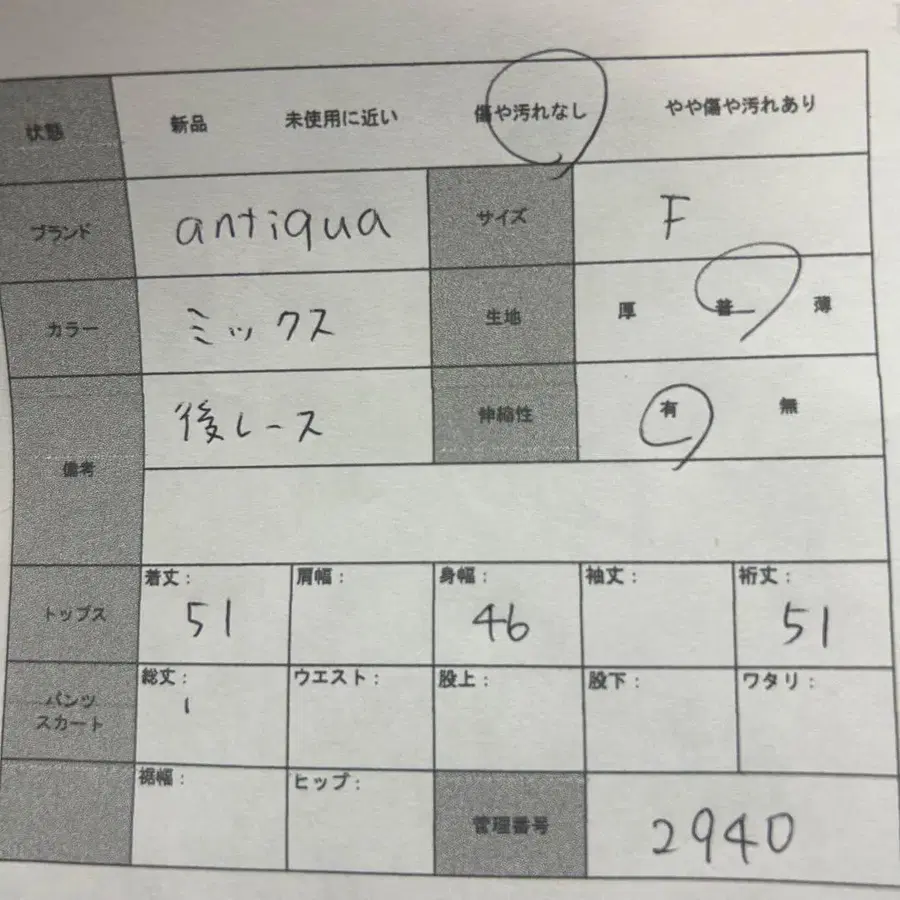 状態 新品 未使用に近い 傷や汚れなし やや傷や汚れあり
ブランド antiqua サイズ F
カラー ミックス 生地 厚 普 薄
備考 後レース 伸縮性 有 無
トップス 着丈: 51 肩幅: 身幅: 46 袖丈: 裄丈: 51
パンツ スカート 総丈: ウエスト: 股上: 股下: ワタリ:
裾幅: ヒップ: 管理番号 2940